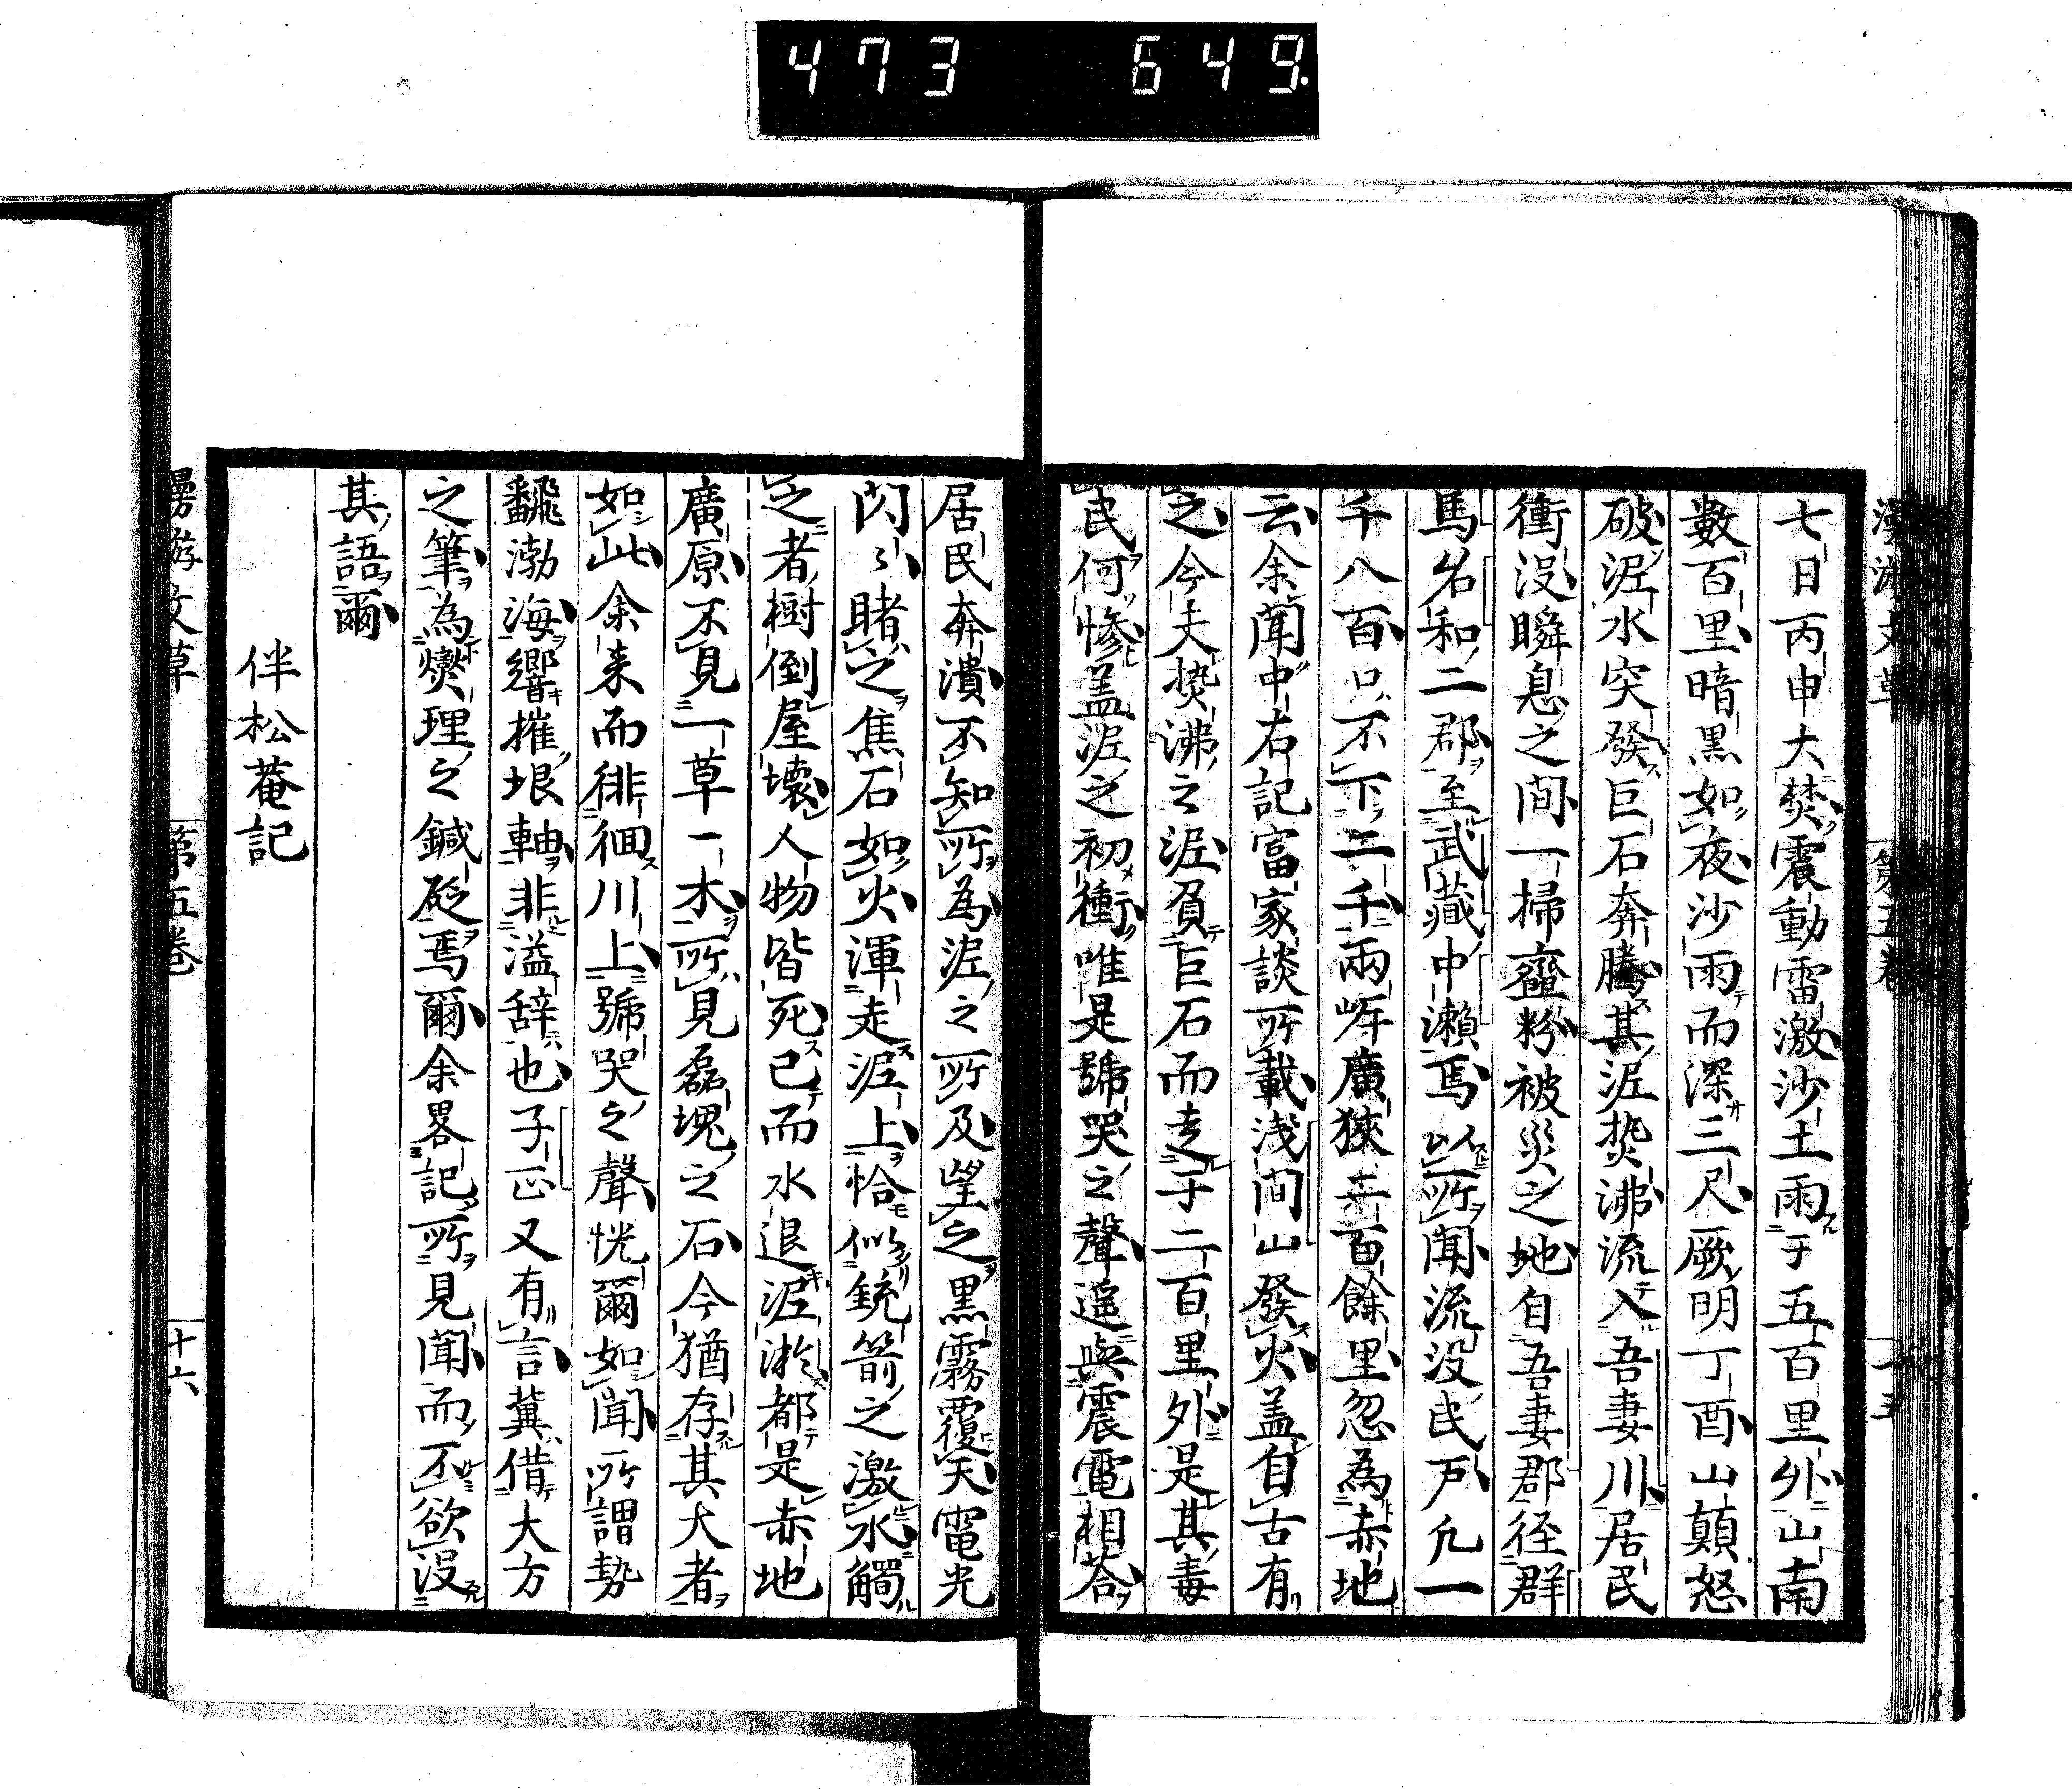 473 649.
七日丙申大焚震動雷激沙土雨于五百里外山南
數百里暗黒如夜沙雨而深三尺厥明丁酉山顛怒
破泥水突發巨石奔騰其泥焚沸流入吾妻川居民
衝没瞬息之間一掃齏粉被災之地自吾妻郡径群
馬名和二郡至武蔵中瀬焉以所聞流没民戸凡一
千八百口不下二千兩岸廣狹 百餘里忽為赤地
云余聞中右記富家談所載浅間山發火盖自古有
之今夫焚沸之泥負巨石而走于二百里外是其毒
民何惨盖泥之初衝唯是號哭之聲遥與震電相荅
居民奔潰不知所為泥之所及望之黒霧覆天電光
閃〻睹之焦石如火渾走泥上恰似銃箭之激水觸
之者樹倒屋壊人物皆死已而水退泥淤都是赤地
廣原不見一草一木所見磊塊之石今猶存其大者
如此余来而徘徊川上號哭之聲恍爾如聞所謂勢
飜渤海響摧垠軸非溢辞也子正又有言冀借大方
之筆為爕理之鍼砭焉爾余畧記所見聞而不欲没
其語爾
伴松菴記
漫游文草 第五巻 十六